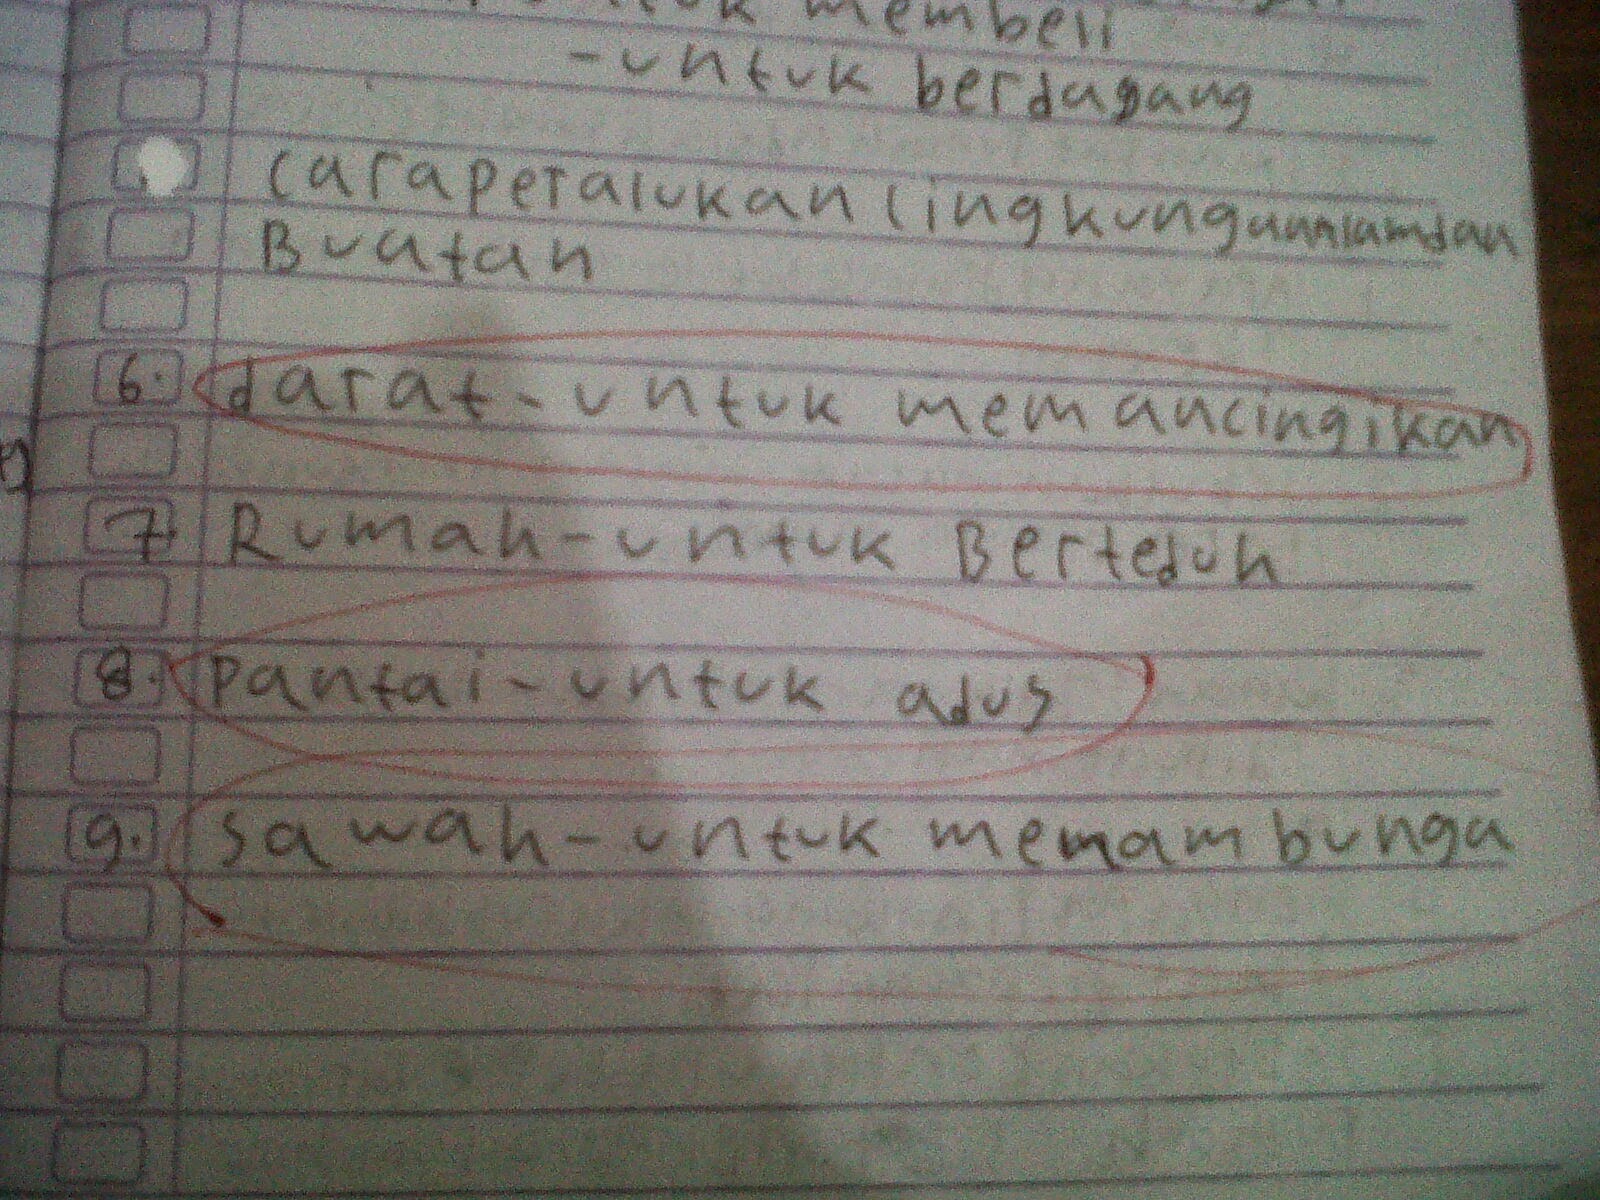 untuk membeli
- untuk berdagang
caraperalukan lingkunganalamdan
Buatan
6. darat - untuk memancingikan
7. Rumah - untuk Berteduh
8. Pantai - untuk adus
9. Sawah - untuk memambunga